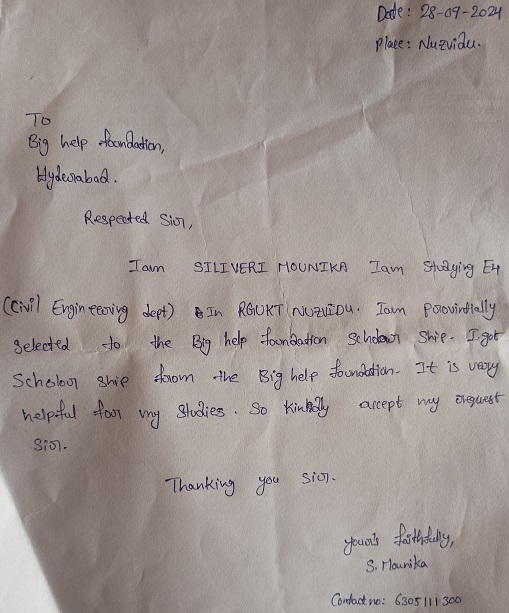 Date: 28-09-2024
Place: Nuzvidu.
To
Big help foundation,
Hyderabad.
Respected Sir,
Iam SILIVERI MOUNIKA Iam Studying E4
(Civil Engineering dept) In RGUKT NUZVIDU. Iam porovintially
selected to the Big help foundation Scholar Ship. I got
Scholar ship from the Big help foundation. It is very
helpful for my Studies. So kindly accept my request
Sir.
Thanking you Sir.
your's faithfully,
S. Mounika
Contact no: 6305111300